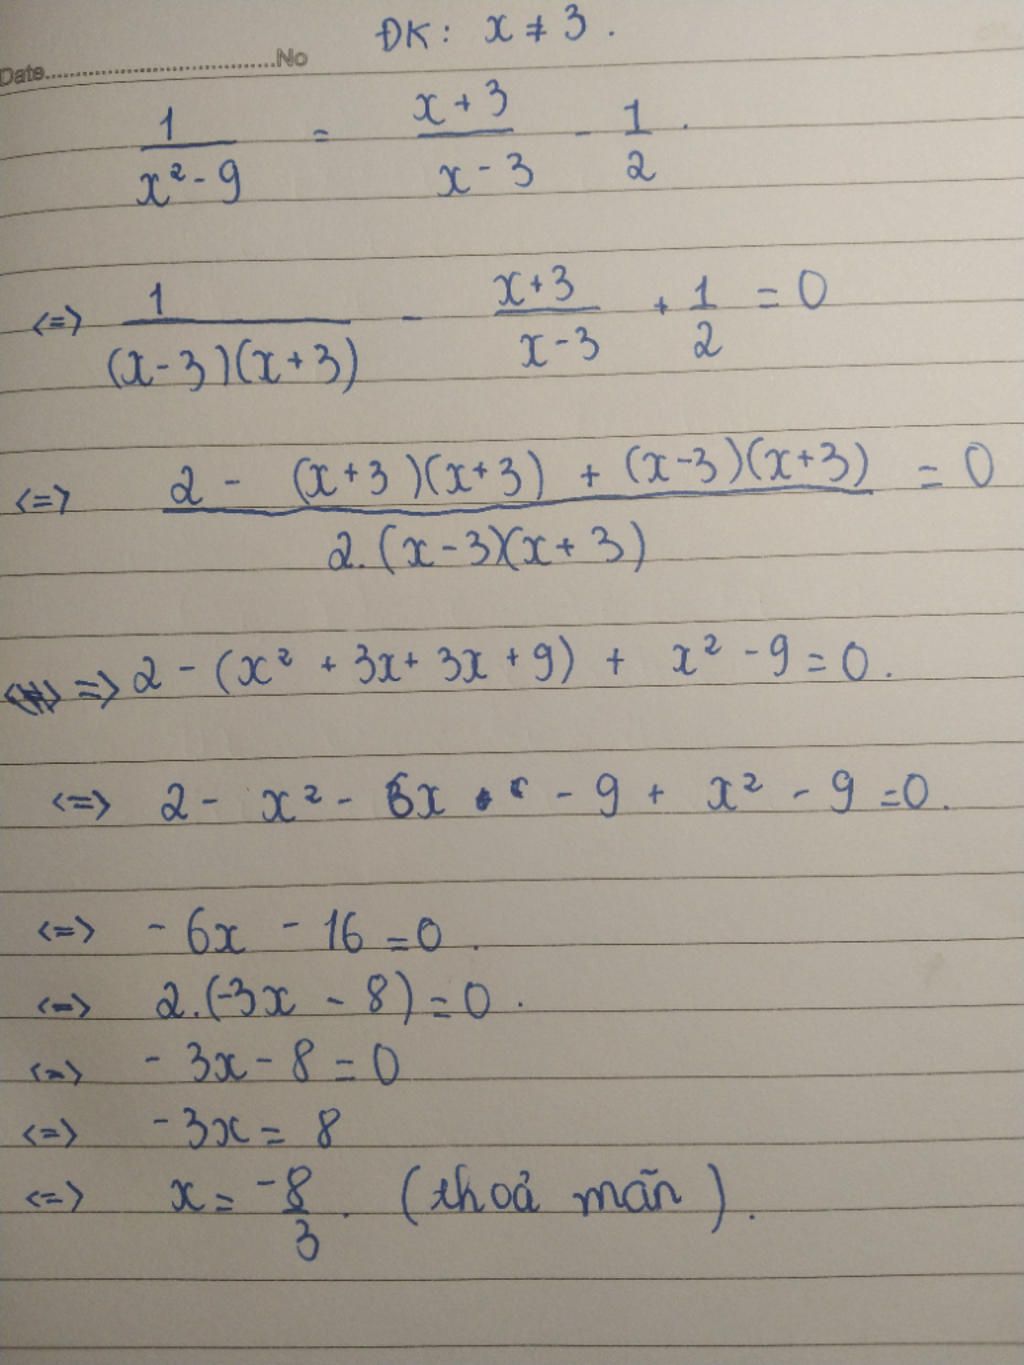 ĐK: x ≠ 3.
Date..............................No
1/(x² - 9) = (x + 3)/(x - 3) - 1/2.
<=> 1/((x - 3)(x + 3)) - (x + 3)/(x - 3) + 1/2 = 0
<=> (2 - (x + 3)(x + 3) + (x - 3)(x + 3))/(2.(x - 3)(x + 3)) = 0
=> 2 - (x² + 3x + 3x + 9) + x² - 9 = 0.
<=> 2 - x² - 6x - 9 + x² - 9 = 0.
<=> - 6x - 16 = 0.
<=> 2.(-3x - 8) = 0.
<=> - 3x - 8 = 0
<=> - 3x = 8
<=> x = -8/3. (thoả mãn).